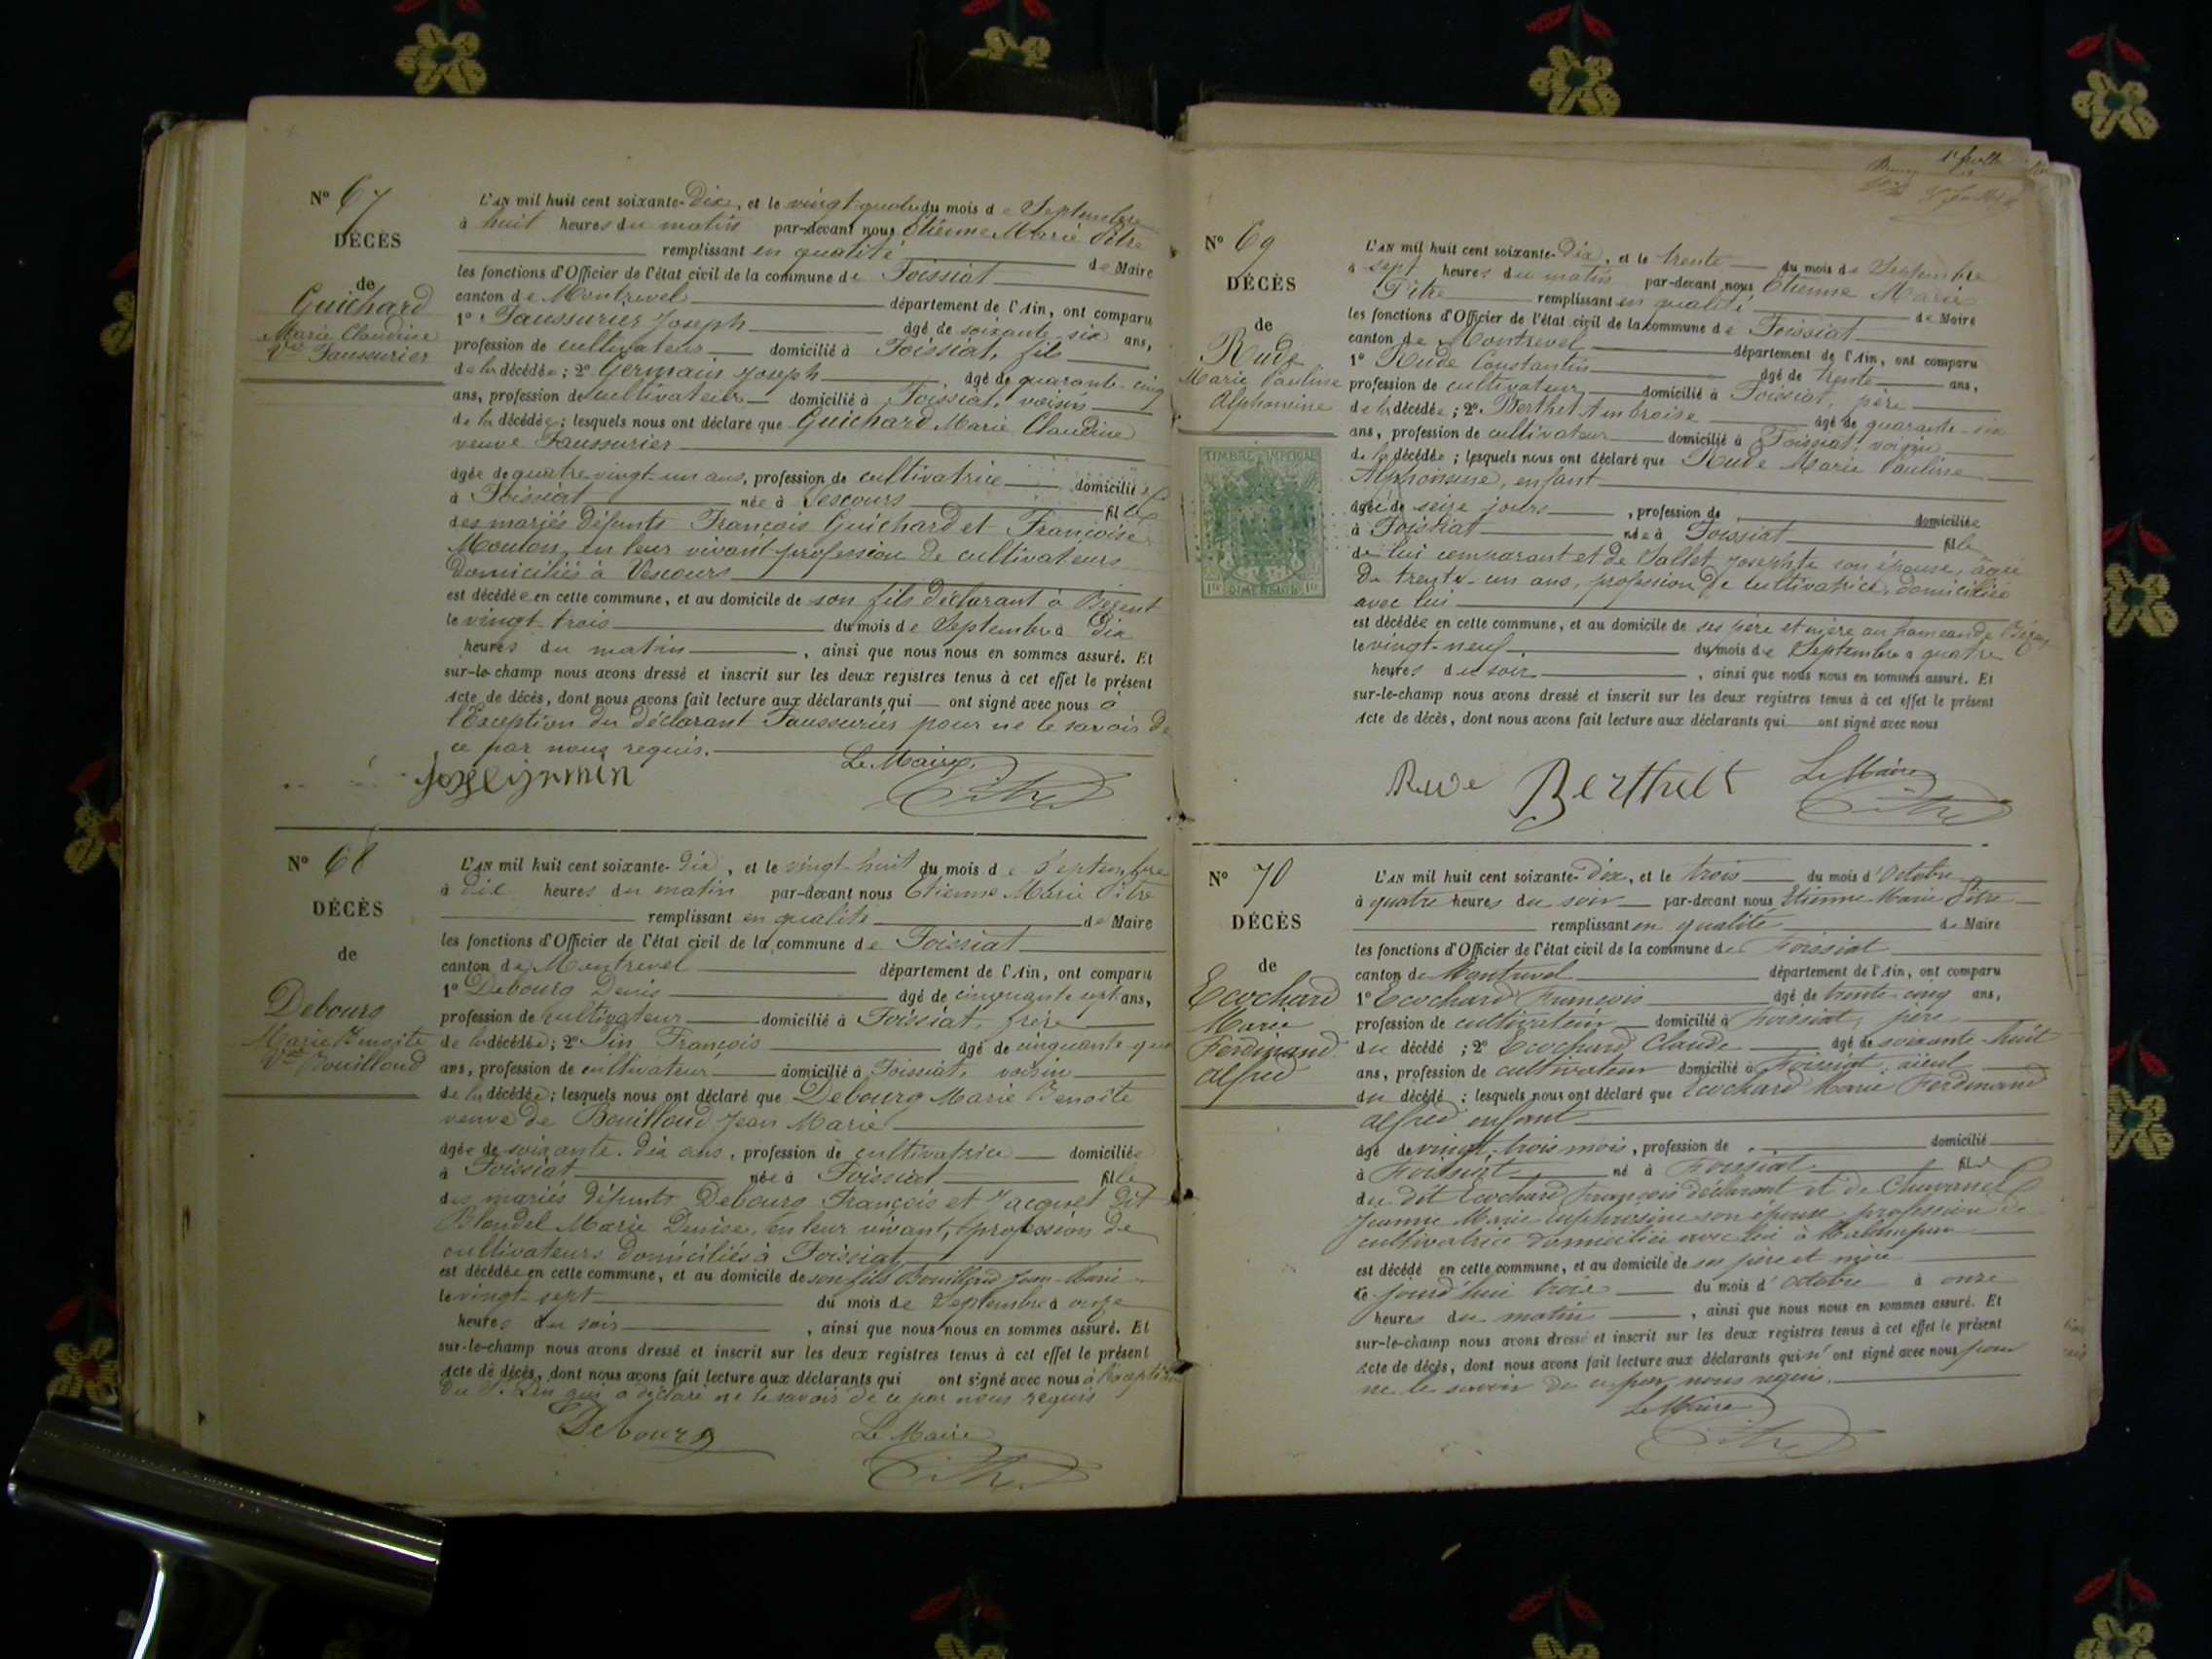 N° 67
DÉCÈS
de
Guichard
Marie Claudine
Vve Faussurier
L'AN mil huit cent soixante-Dix, et le vingt-quatre du mois de Septembre
à huit heures du matin par-devant nous Etienne Marie Pitre
remplissant en qualité de Maire
les fonctions d'Officier de l'état civil de la commune de Foissiat
canton de Montrevel département de l'Ain, ont comparu
1° Faussurier Joseph âgé de soixante-six ans,
profession de cultivateur domicilié à Foissiat, fils
de la décédée; 2° Germain Joseph âgé de quarante-cinq
ans, profession de cultivateur domicilié à Foissiat, voisin
de la décédée; lesquels nous ont déclaré que Guichard Marie Claudine
veuve Faussurier
âgée de quatre-vingt-un ans, profession de cultivatrice domiciliée
à Foissiat née à Vescours fille
des mariés défunts François Guichard et Françoise
Mouton, en leur vivant profession de cultivateurs
domiciliés à Vescours
est décédée en cette commune, et au domicile de son fils déclarant à Bézent
le vingt-trois du mois de Septembre à Dix
heures du matin, ainsi que nous nous en sommes assuré. Et
sur-le-champ nous avons dressé et inscrit sur les deux registres tenus à cet effet le présent
acte de décès, dont nous avons fait lecture aux déclarants qui ont signé avec nous à
l'exception du déclarant Faussurier pour ne le savoir de
ce par nous requis.
Le Maire,
Pitre
N° 68
DÉCÈS
de
Debourg
Marie Benoite
Vve Bouilloud
L'AN mil huit cent soixante-dix, et le vingt-huit du mois de Septembre
à dix heures du matin par-devant nous Etienne Marie Pitre
remplissant en qualité de Maire
les fonctions d'Officier de l'état civil de la commune de Foissiat
canton de Montrevel département de l'Ain, ont comparu
1° Debourg Denis âgé de cinquante sept ans,
profession de cultivateur domicilié à Foissiat, frère
de la décédée; 2° François âgé de cinquante
ans, profession de cultivateur domicilié à Foissiat, voisin
de la décédée; lesquels nous ont déclaré que Debourg Marie Benoite
veuve de Bouilloud Jean Marie
âgée de soixante-dix ans, profession de cultivatrice domiciliée
à Foissiat née à Foissiat fille
des mariés défunts Debourg François et Jacquet dit
Blondel Marie Denise, en leur vivant, profession de
cultivateurs domiciliés à Foissiat
est décédée en cette commune, et au domicile de son fils Bouilloud Jean-Marie
le vingt-sept du mois de Septembre à onze
heures du soir, ainsi que nous nous en sommes assuré. Et
sur-le-champ nous avons dressé et inscrit sur les deux registres tenus à cet effet le présent
acte de décès, dont nous avons fait lecture aux déclarants qui ont signé avec nous à l'exception
qui a déclaré ne le savoir de ce par nous requis
Debourg
Le Maire
Pitre
N° 69
DÉCÈS
de
Rude
Marie Pauline
Alphonsine
TIMBRE IMPERIAL
DIMENSION
L'AN mil huit cent soixante-Dix, et le trente du mois de Septembre
à sept heures du matin par-devant nous Etienne Marie
Pitre remplissant en qualité de Maire
les fonctions d'Officier de l'état civil de la commune de Foissiat
canton de Montrevel département de l'Ain, ont comparu
1° Rude Constantin âgé de trente ans,
profession de cultivateur domicilié à Foissiat, père
de la décédée; 2° Berthet Ambroise âgé de quarante-six
ans, profession de cultivateur domicilié à Foissiat voisin
de la décédée; lesquels nous ont déclaré que Rude Marie Pauline
Alphonsine, enfant
âgée de seize jours, profession de domiciliée
à Foissiat née à Foissiat fille
de lui comparant et de Pallet Josephte son épouse, âgée
de trente-un ans, profession de cultivatrice, domiciliée
avec lui
est décédée en cette commune, et au domicile de ses père et mère au hameau de Bézent
le vingt-neuf du mois de Septembre à quatre
heures du soir, ainsi que nous nous en sommes assuré. Et
sur-le-champ nous avons dressé et inscrit sur les deux registres tenus à cet effet le présent
acte de décès, dont nous avons fait lecture aux déclarants qui ont signé avec nous
Rude Berthet Le Maire
Pitre
N° 70
DÉCÈS
de
Ecochard
Marie
Ferdinand
Alfred
L'AN mil huit cent soixante-Dix, et le trois du mois d'Octobre
à quatre heures du soir par-devant nous Etienne Marie Pitre
remplissant en qualité de Maire
les fonctions d'Officier de l'état civil de la commune de Foissiat
canton de Montrevel département de l'Ain, ont comparu
1° Ecochard François âgé de trente-cinq ans,
profession de cultivateur domicilié à Foissiat, père
du décédé; 2° Ecochard Claude âgé de soixante-huit
ans, profession de cultivateur domicilié à Foissiat, aïeul
du décédé; lesquels nous ont déclaré que Ecochard Marie Ferdinand
Alfred enfant
âgé de vingt-trois mois, profession de domicilié
à Foissiat né à Foissiat fils
du dit Ecochard François déclarant et de
Jeanne Marie Euphrosine son épouse profession de
cultivatrice domiciliée avec lui à
est décédé en cette commune, et au domicile de ses père et mère
ce jourd'hui trois du mois d'octobre à onze
heures du matin, ainsi que nous nous en sommes assuré. Et
sur-le-champ nous avons dressé et inscrit sur les deux registres tenus à cet effet le présent
acte de décès, dont nous avons fait lecture aux déclarants qui n'ont signé avec nous pour
ne le savoir de ce par nous requis.
Le Maire
Pitre